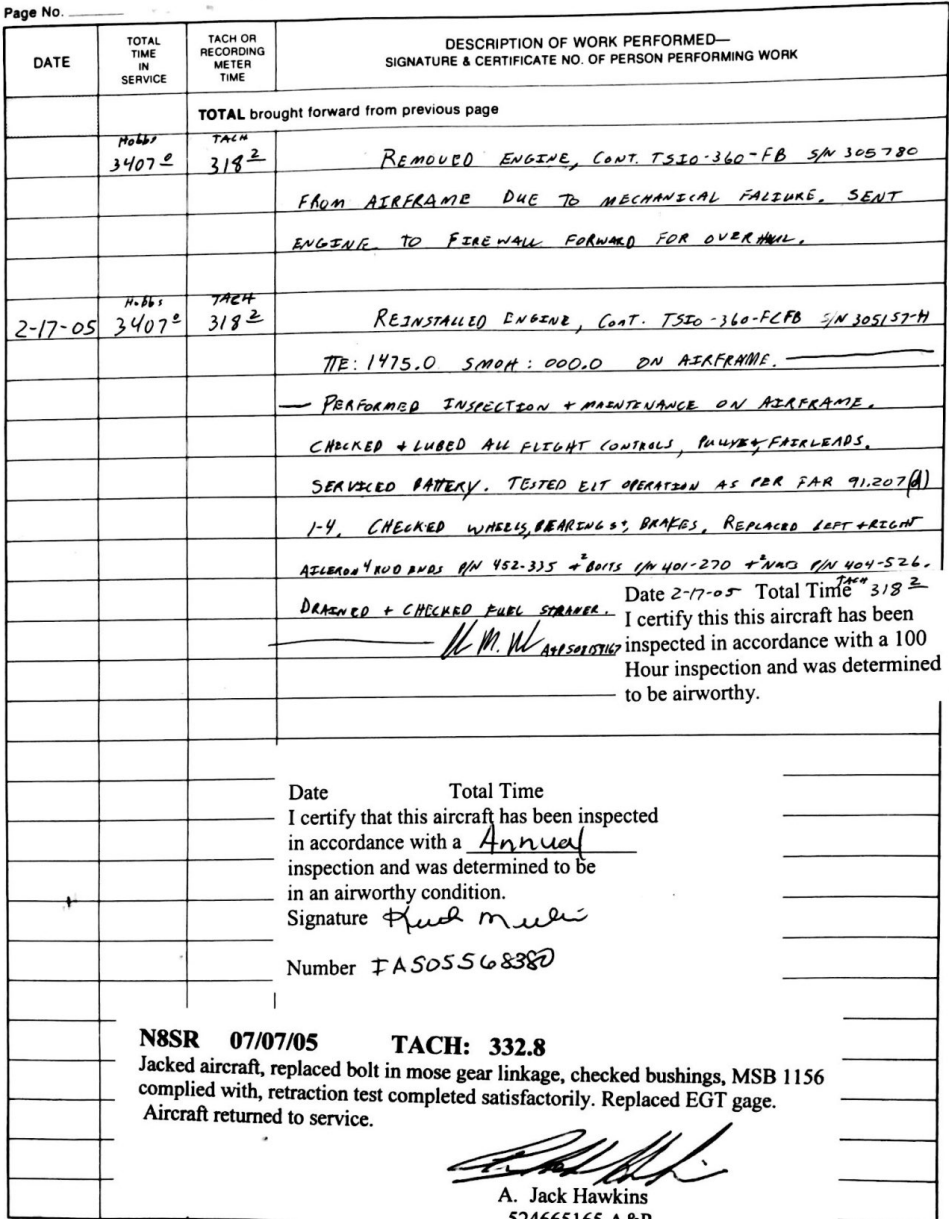 Page No.
DATE
TOTAL TIME IN SERVICE
TACH OR RECORDING METER TIME
DESCRIPTION OF WORK PERFORMED—
SIGNATURE & CERTIFICATE NO. OF PERSON PERFORMING WORK
TOTAL brought forward from previous page
Hobbs TACH
3407.0 318.2 REMOVED ENGINE, CONT. TSIO-360-FB S/N 305780
FROM AIRFRAME DUE TO MECHANICAL FALIURE. SENT
ENGINE TO FIREWALL FORWARD FOR OVERHAUL.
Hobbs TACH
2-17-05 3407.0 318.2 REINSTALLED ENGINE, CONT. TSIO-360-FCFB S/N 305157-H
TTE: 1475.0 SMOH: 000.0 ON AIRFRAME.
PERFORMED INSPECTION + MAINTENANCE ON AIRFRAME.
CHECKED + LUBED ALL FLIGHT CONTROLS, FAIRLEADS.
SERVICED BATTERY. TESTED ELT OPERATION AS PER FAR 91.207(d)
1-4. CHECKED WHEELS, BEARINGS +, BRAKES. REPLACED LEFT + RIGHT
AILERON 4 ROD ENDS P/N 452-335 + 2 BOLTS P/N 401-270 + 2 NUTS P/N 404-526.
DRAINED + CHECKED FUEL STRANER.
A+P
Date 2-17-05 Total Time TACH 318.2
I certify this this aircraft has been
inspected in accordance with a 100
Hour inspection and was determined
to be airworthy.
Date Total Time
I certify that this aircraft has been inspected
in accordance with a Annual
inspection and was determined to be
in an airworthy condition.
Signature
Number IA505568380
N8SR 07/07/05 TACH: 332.8
Jacked aircraft, replaced bolt in mose gear linkage, checked bushings, MSB 1156
complied with, retraction test completed satisfactorily. Replaced EGT gage.
Aircraft returned to service.
A. Jack Hawkins
524665165 A&P